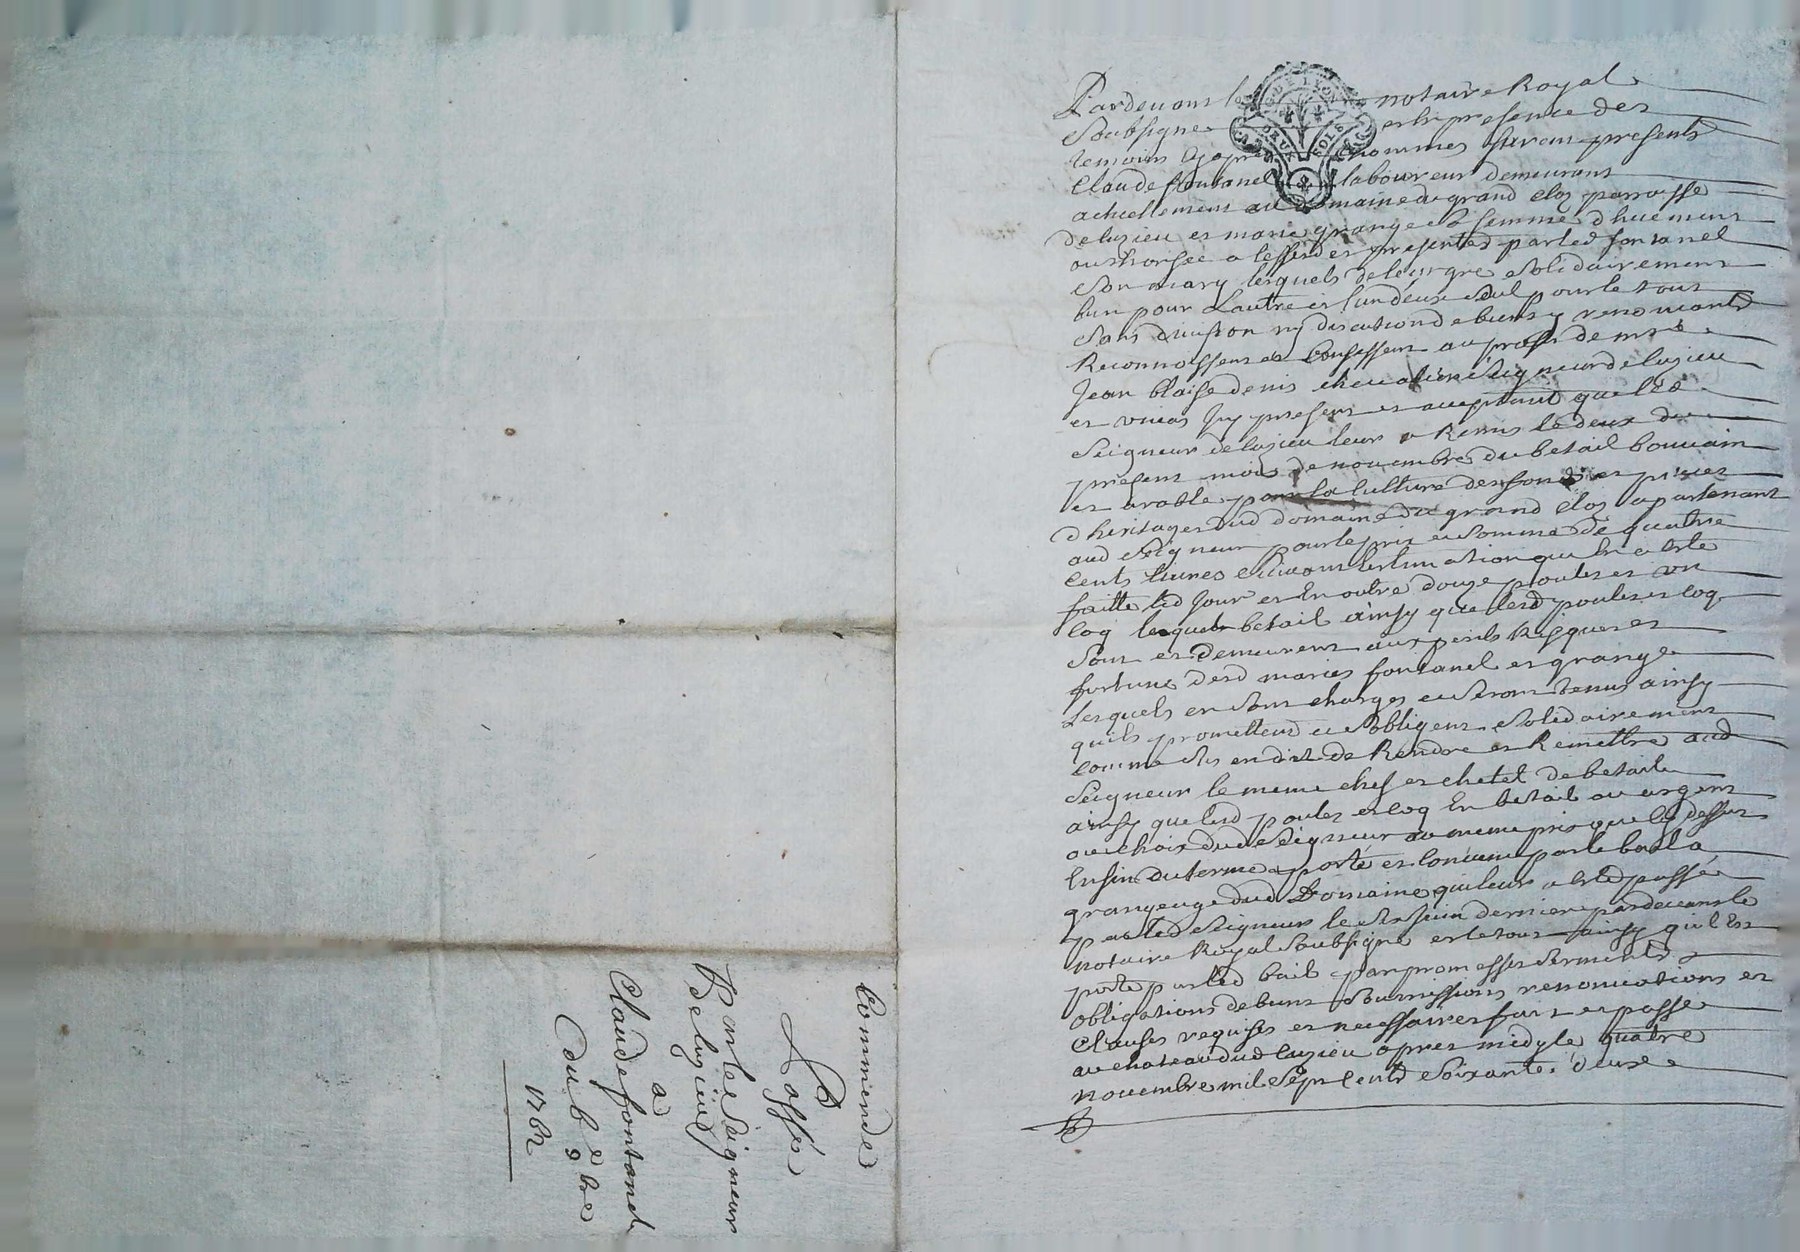 Commende
Passée
Par le Seigneur
de luzieu
a
Claude fontanel
du 4e 9bre
1762
G. DE LYON
DEUX SOLS
Pardevant le notaire Royal
Soubsigné et En presence des
temoins Cy apres nommes furent presents
Claude fontanel laboureur demeurant
actuellement au domaine du grand Clos parroisse
de luzieu et marie grange Sa femme dhuement
authorisée a leffect des presentes par led fontanel
Son mary lesquels de leur gré Solidairement
lun pour L'autre et l'un d'eux Seul pour le tout
Sans division ny discution de biens y renoncants
Reconnoissent et Confessent au profit de mre
Jean blaise denis chevalier Seigneur de luzieu
et unias Icy present et acceptant que led
Seigneur de luzieu leur a Remis le deux du
present mois de novembre du betail bouvain
et arable pour la Culture des fonds et pieces
d'heritages dud domaine du grand Clos apartenant
aud Seigneur pour le prix et Somme de quatre
Cents livres Suivant Lestimation qui En a Eté
faitte led Jour et En outre douze poules et un
Coq lequel betail ainsy que lesd poules et Coq
Sont et demeurent aux perils Risques et
fortune desd mariés fontanel et grange
Lesquels en Sont chargés et Seront tenus ainsy
quils promettent et Sobligent Solidairement
Comme Sus en dit de Rendre et Remettre aud
Seigneur le meme chef et chetel de betail
ainsy que lesd poules et Coq En betail ou argent
au choix dud Seigneur au meme prix que Cy dessus
En fin du terme porté et Convenu par le bail a
grangeage dud Domaine qui leur a Eté passé
par led Seigneur le Six Juin dernier pardevant le
notaire Royal Soubsigné et le tout ainsy quil Est
porté par led bail par promesses Serments
obligations de biens Soumissions renonciations et
Clauses requises et necessaires fait et passé
au chateau dud luzieu apres midy le quatre
novembre mil Sept Cents Soixante deux